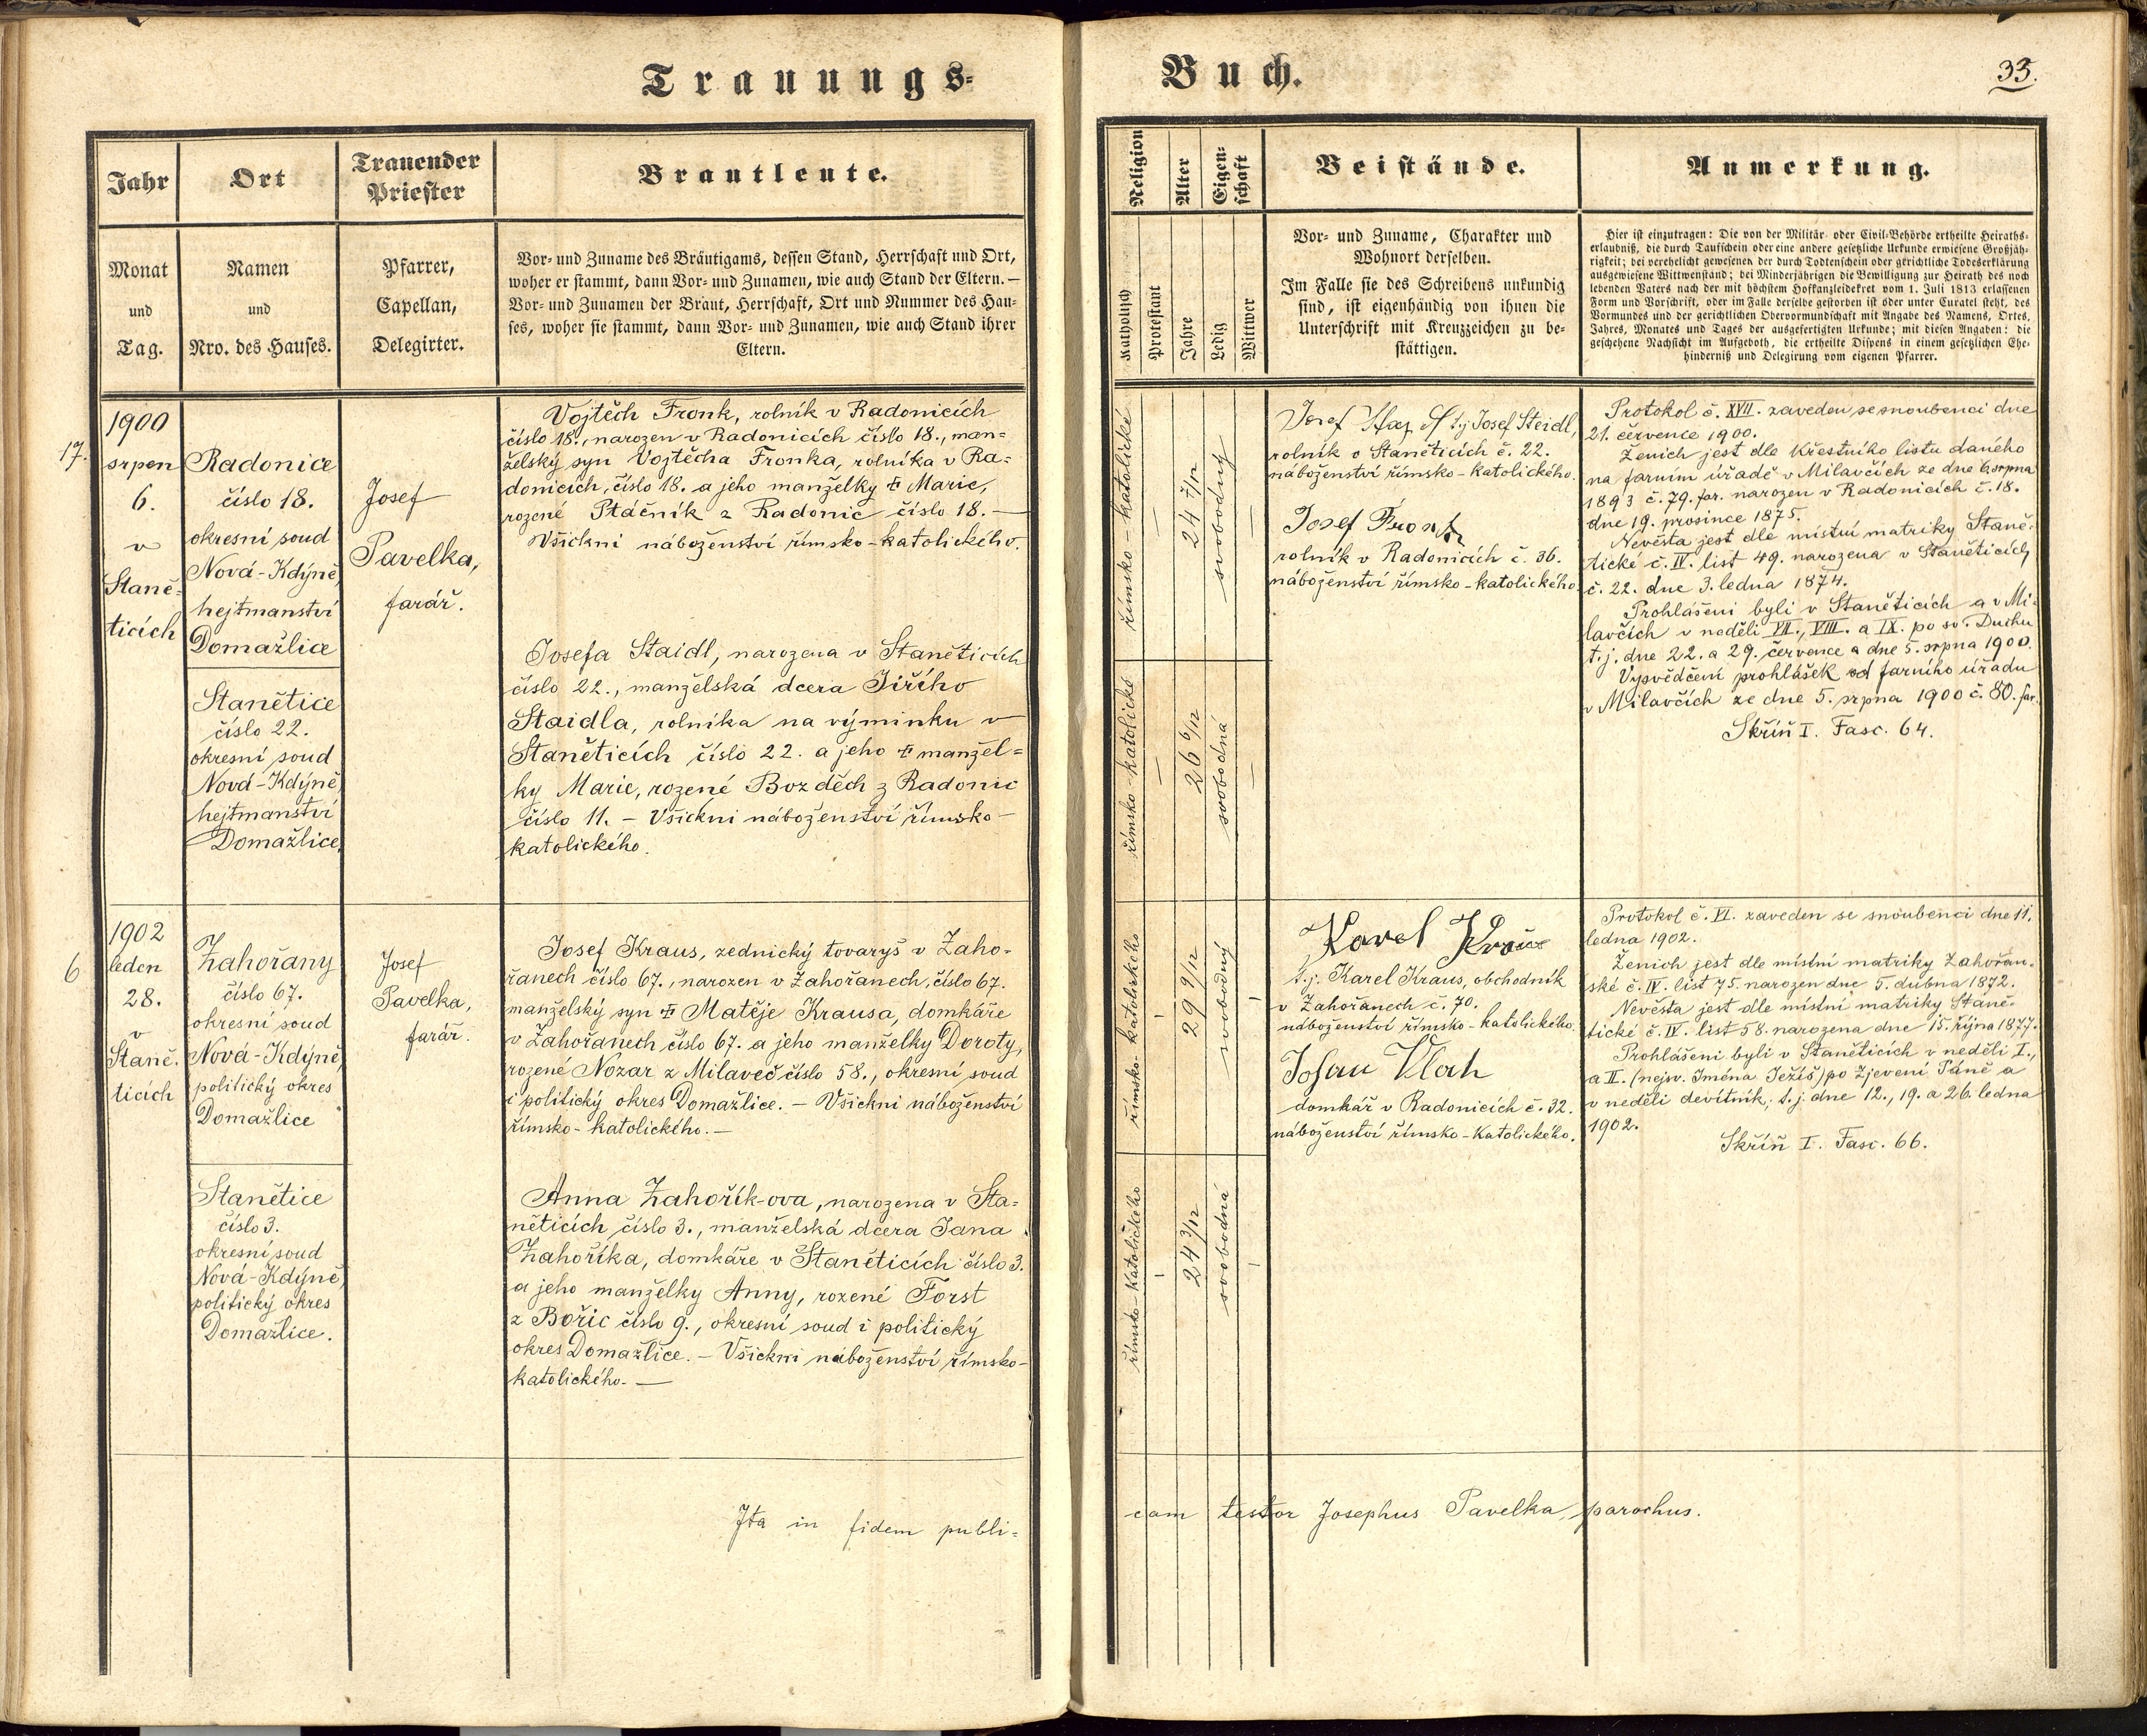 Trauungs-
Buch.
33.
Jahr
Ort
Trauender
Priester
Brautleute.
Monat
und
Tag.
Namen
und
Nro. des Hauses.
Pfarrer,
Capellan,
Delegirter.
Vor- und Zuname des Bräutigams, dessen Stand, Herrschaft und Ort,
woher er stammt, dann Vor- und Zunamen, wie auch Stand der Eltern. —
Vor- und Zunamen der Braut, Herrschaft, Ort und Nummer des Hau-
ses, woher sie stammt, dann Vor- und Zunamen, wie auch Stand ihrer
Eltern.
Religion
Alter
Eigen-
schaft
Beistände.
Anmerkung.
Katholisch
Protestant
Jahre
Ledig
Wittwer
Vor- und Zuname, Charakter und
Wohnort derselben.
Im Falle sie des Schreibens unkundig
sind, ist eigenhändig von ihnen die
Unterschrift mit Kreuzzeichen zu be-
stättigen.
Hier ist einzutragen: Die von der Militär- oder Civil-Behörde ertheilte Heiraths-
erlaubniß, die durch Taufschein oder eine andere gesetzliche Urkunde erwiesene Großjäh-
rigkeit; bei verehelicht gewesenen der durch Todtenschein oder gerichtliche Todeserklärung
ausgewiesene Wittwenstand; bei Minderjährigen die Bewilligung zur Heirath des noch
lebenden Vaters nach der mit höchstem Hofkanzleidekret vom 1. Juli 1813 erlassenen
Form und Vorschrift, oder im Falle derselbe gestorben ist oder unter Curatel steht, des
Vormundes und der gerichtlichen Obervormundschaft mit Angabe des Namens, Ortes,
Jahres, Monates und Tages der ausgefertigten Urkunde; mit diesen Angaben: die
geschehene Nachsicht im Aufgeboth, die ertheilte Dispens in einem gesetzlichen Ehe-
hinderniß und Delegirung vom eigenen Pfarrer.
17.
1900
srpen
6.
v
Staně-
ticích
Radonice
číslo 18.
okresní soud
Nová-Kdýně,
hejtmanství
Domažlice
Stanětice
číslo 22.
okresní soud
Nová-Kdýně,
hejtmanství
Domažlice.
Josef
Pavelka,
farář.
Vojtěch Fronk, rolník v Radonicích
číslo 18., narozen v Radonicích číslo 18., man=
želský syn Vojtěcha Fronka, rolníka v Ra=
donicích, číslo 18. a jeho manželky ‡ Marie,
rozené Ptáčník z Radonic číslo 18. —
Všickni náboženství římsko-katolického.
Josefa Staidl, narozena v Staněticích
číslo 22., manželská dcera Jiřího
Staidla, rolníka na výminku v
Staněticích číslo 22. a jeho ‡ manžel=
ky Marie, rozené Bozděch z Radonic
číslo 11. – Všickni náboženství římsko-
katolického.
římsko-katolické
—
24 7/12
svobodný
—
římsko-katolické
—
26 6/12
svobodná
—
Josef t.j. Josef Steidl,
rolník v Staněticích č. 22.
náboženství římsko-katolického.
Josef Fronk
rolník v Radonicích č. 36.
náboženství římsko-katolického
Protokol č. XVII. zaveden se snoubenci dne
21. července 1900.
Ženich jest dle křestního listu daného
na farním úřadě v Milavčích ze dne 6. srpna
1893 č. 79. far. narozen v Radonicích č. 18.
dne 19. prosince 1875.
Nevěsta jest dle místní matriky Staně-
tické č. IV. list 49. narozena v Staněticích
č. 22. dne 3. ledna 1874.
Prohlášeni byli v Staněticích a v Mi-
lavčích v neděli VII., VIII. a IX. po sv. Duchu
t.j. dne 22. a 29. července a dne 5. srpna 1900.
Vysvědčení prohlášek od farního úřadu
v Milavčích ze dne 5. srpna 1900 č. 80. far.
Skříň I. Fasc. 64.
6
1902
leden
28.
v
Staně-
ticích
Zahořany
číslo 67.
okresní soud
Nová-Kdýně,
politický okres
Domažlice
Stanětice
číslo 3.
okresní soud
Nová-Kdýně,
politický okres
Domažlice.
Josef
Pavelka,
farář.
Josef Kraus, zednický tovaryš v Zaho-
řanech číslo 67., narozen v Zahořanech, číslo 67.
manželský syn ‡ Matěje Krausa, domkáře
v Zahořanech číslo 67. a jeho manželky Doroty,
rozené Nozar z Milaveč číslo 58., okresní soud
i politický okres Domažlice. – Všickni náboženství
římsko-katolického. —
Anna Zahořík-ova, narozena v Sta=
něticích číslo 3., manželská dcera Jana
Zahoříka, domkáře v Staněticích číslo 3.
a jeho manželky Anny, rozené Forst
z Bořic číslo 9., okresní soud i politický
okres Domažlice. – Všickni náboženství římsko-
katolického. —
římsko-katolického
–
29 9/12
svobodný
–
římsko-katolického
–
24 3/12
svobodná
–
Karel Kraus
t.j. Karel Kraus, obchodník
v Zahořanech č. 70.
náboženství římsko-katolického.
Johan Vlach
domkář v Radonicích č. 32.
náboženství římsko-katolického.
Protokol č. VI. zaveden se snoubenci dne 11.
ledna 1902.
Ženich jest dle místní matriky Zahořan-
ské č. IV. list 75. narozen dne 5. dubna 1872.
Nevěsta jest dle místní matriky Staně-
tické č. IV. list 58. narozena dne 15. října 1877.
Prohlášeni byli v Staněticích v neděli I.,
a II. (nejsv. Jména Ježíš) po Zjevení Páně a
v neděli devítník, t.j. dne 12., 19. a 26. ledna
1902.
Skříň I. Fasc. 66.
Ita in fidem publi=
cam testor Josephus Pavelka, parochus.